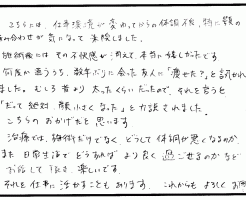 こちらには、仕事環境が変わってからの体調不良、特に顎の
み合わせが気になって来院しました。
施術後には その不快感が消えて、本当に嬉しかったです
何度か通ううち、数年ぶりに会った友人に「痩せた?」と訊かれ
ました。むしろ昔より太ったくらいだったので、それを言うと
「だって絶対、顔小さくなった」と力説されました。
こちらのおかげだと思います
治療では、施術だけでなく、どうして体調が悪くなるのか、
また 日常生活で どうすれば より良く 過ごせるのか など
お話して下さり、楽しいです
それを仕事に活かすこともあります。これからもよろしくお